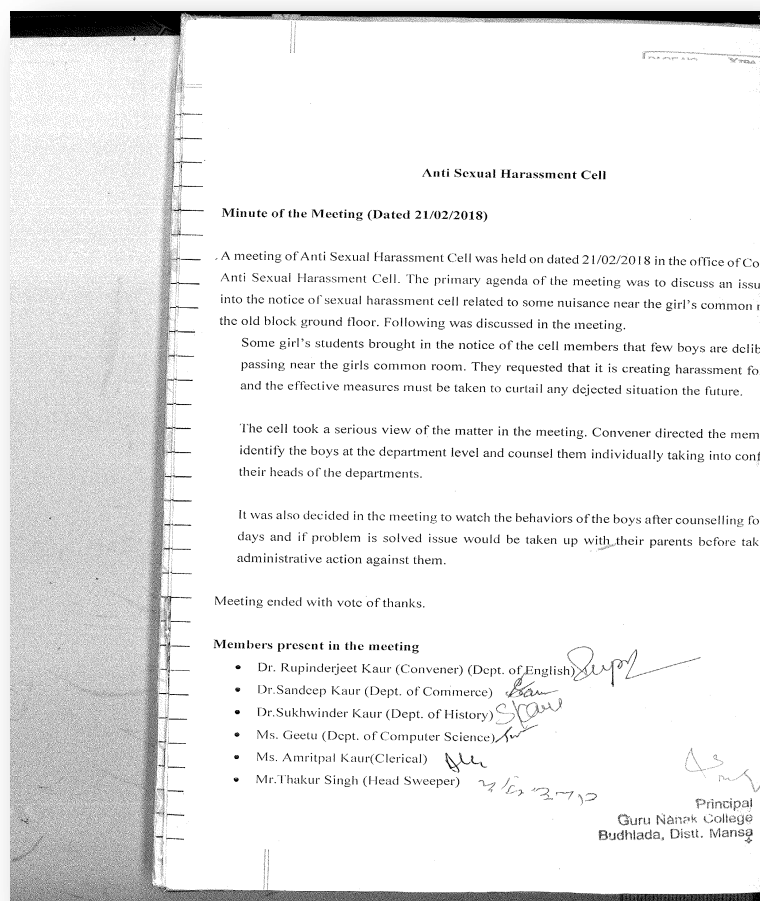 Anti Sexual Harassment Cell
Minute of the Meeting (Dated 21/02/2018)
A meeting of Anti Sexual Harassment Cell was held on dated 21/02/2018 in the office of Co
Anti Sexual Harassment Cell. The primary agenda of the meeting was to discuss an issu
into the notice of sexual harassment cell related to some nuisance near the girl's common
the old block ground floor. Following was discussed in the meeting.
Some girl's students brought in the notice of the cell members that few boys are delib
passing near the girls common room. They requested that it is creating harassment fo
and the effective measures must be taken to curtail any dejected situation the future.
The cell took a serious view of the matter in the meeting. Convener directed the mem
identify the boys at the department level and counsel them individually taking into conf
their heads of the departments.
It was also decided in the meeting to watch the behaviors of the boys after counselling fo
days and if problem is solved issue would be taken up with their parents before tak
administrative action against them.
Meeting ended with vote of thanks.
Members present in the meeting
• Dr. Rupinderjeet Kaur (Convener) (Dept. of English)
• Dr.Sandeep Kaur (Dept. of Commerce)
• Dr.Sukhwinder Kaur (Dept. of History)
• Ms. Geetu (Dept. of Computer Science)
• Ms. Amritpal Kaur(Clerical)
• Mr.Thakur Singh (Head Sweeper)
Principal
Guru Nanak College
Budhlada, Distt. Mansa